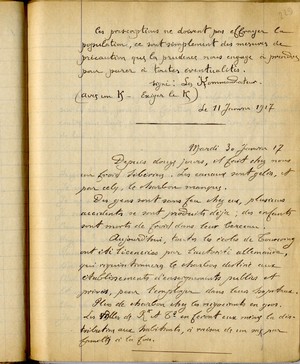 Ces prescriptions ne doivent pas effrayer la
population, ce sont simplement des mesures de
précaution que la prudence nous engage à prendre
pour parer à toutes éventualités.
signé : Les Kommandantur
(avec un K - exiger le K)
Le 11 Janvier 1917
Mardi 30 Janvier 17
Depuis douze jours, il fait chez nous
un froid sibérien. Les canaux sont gelés, et
par cela, le charbon manque.
Des gens sont sans feu chez eux, plusieurs
accidents se sont produits déjà ; des enfants
sont morts de froid dans leur berceau.
Aujourd'hui, toutes les écoles de Tourcoing
ont été licenciées par l'autorité allemande,
qui réquisitionne le charbon destiné aux
établissements d'enseignements publics et
privés, pour l'employer dans leurs
Plus de charbon chez les négociants en gros.
Les Villes de Rx et Tg en feront eux mêmes la dis-
tribution aux habitants, à raison de un sac par
famille à la fois.